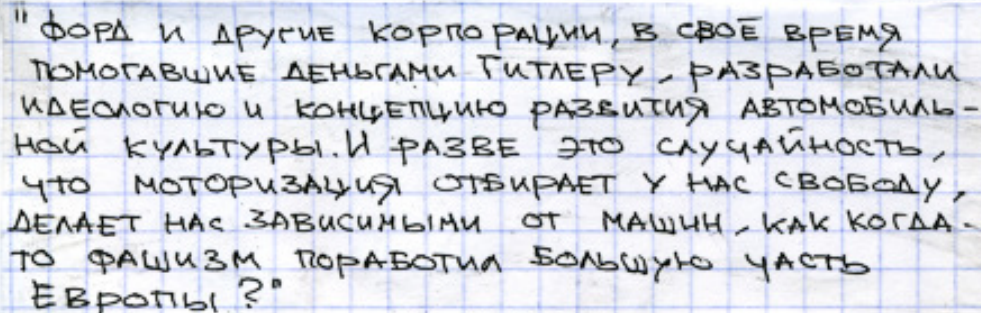 "ФОРД И ДРУГИЕ КОРПОРАЦИИ, В СВОЁ ВРЕМЯ
ПОМОГАВШИЕ ДЕНЬГАМИ ГИТЛЕРУ, РАЗРАБОТАЛИ
ИДЕОЛОГИЮ И КОНЦЕПЦИЮ РАЗВИТИЯ АВТОМОБИЛЬ-
НОЙ КУЛЬТУРЫ. И РАЗВЕ ЭТО СЛУЧАЙНОСТЬ,
ЧТО МОТОРИЗАЦИЯ ОТБИРАЕТ У НАС СВОБОДУ,
ДЕЛАЕТ НАС ЗАВИСИМЫМИ ОТ МАШИН, КАК КОГДА-
ТО ФАШИЗМ ПОРАБОТИЛ БОЛЬШУЮ ЧАСТЬ
ЕВРОПЫ?"